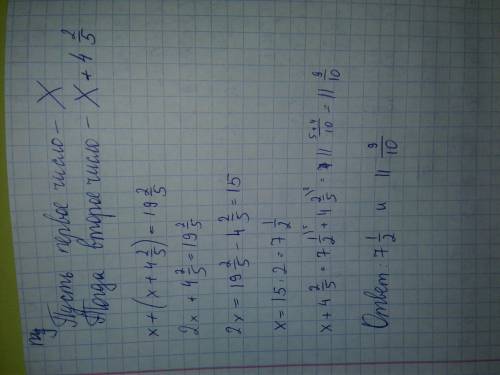 Пусть первое число - X
Тогда второе число - X + 4 2/5
x + (x + 4 2/5) = 19 2/5
2x + 4 2/5 = 19 2/5
2x = 19 2/5 - 4 2/5 = 15
x = 15 : 2 = 7 1/2
x + 4 2/5 = 7 1/2 + 4 2/5 = 11 5+4/10 = 11 9/10
Ответ: 7 1/2 и 11 9/10